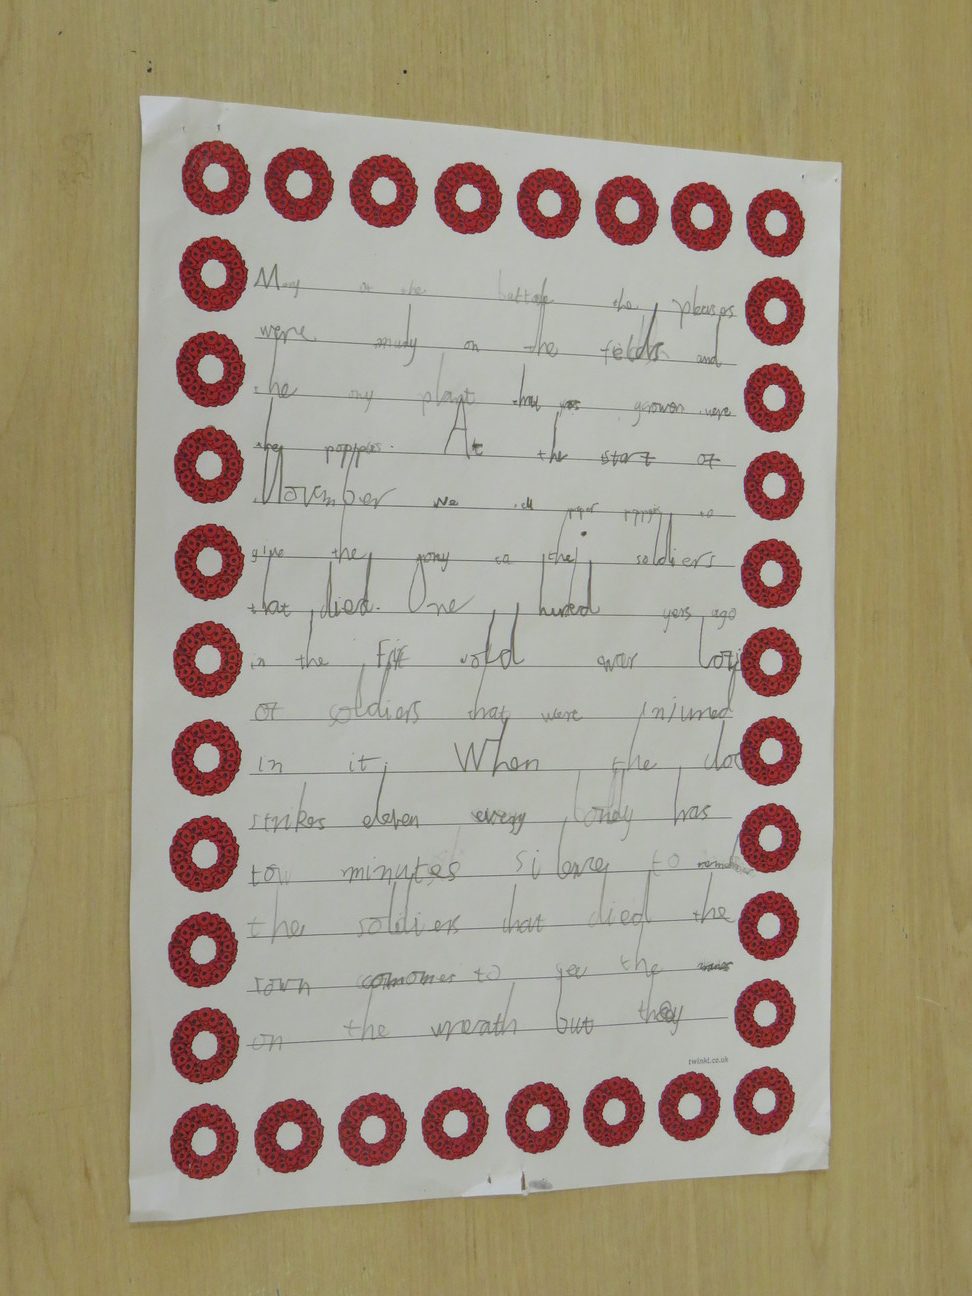 May on the battale the plases
were mudy on the fields and
the ony plant that was growen were
the poppies. At the start of
November we sell paper poppys to
give the mony to the soldiers
that died. One hunred yers ago
in the First world war lots
of soldiers that were injured
in it. When the cloc
strikes eleven every body has
tow minutes silence to remember
the soldiers that died the
town comomes to see the names
on the wreath but they
twinkl.co.uk